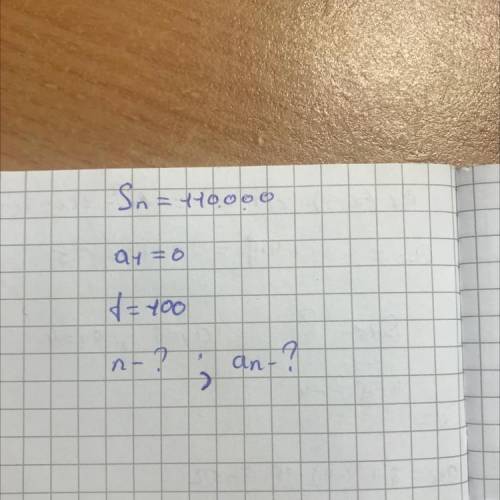 Sn = 110.000
a1 = 0
d = 100
n - ? ; an - ?